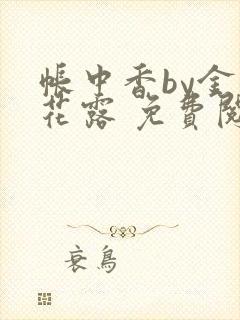 帳中香by金
花露 免費閱
衰鳥